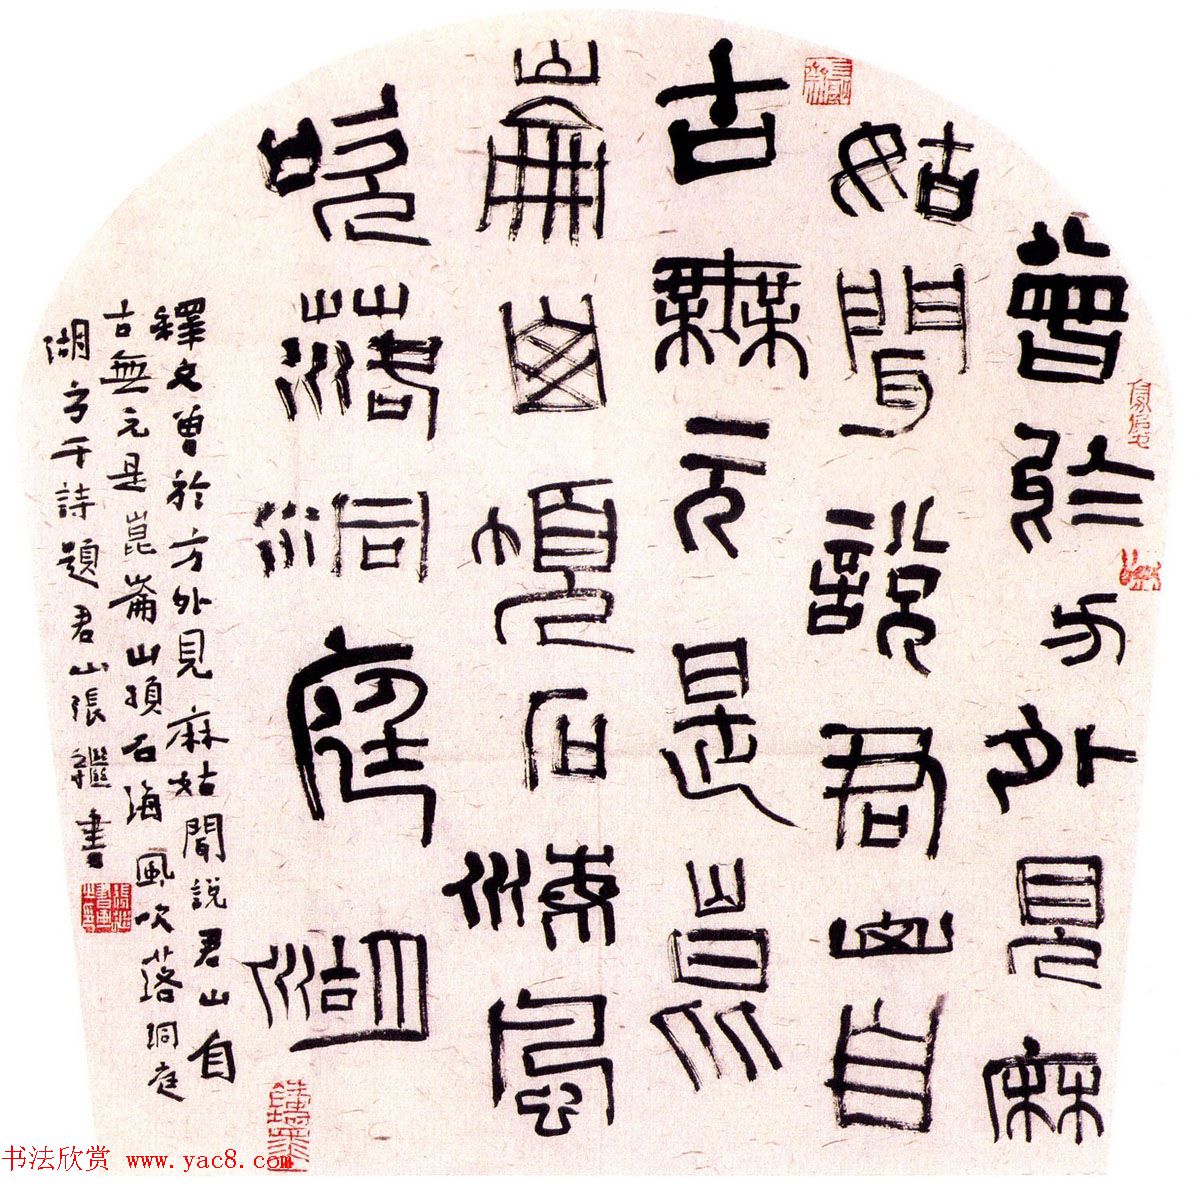 曾於方外見麻
姑聞說君山自
古無元是崑
崙山頂石海風
吹落洞庭湖
釋文曾於方外見麻姑聞說君山自
古無元是崑崙山頂石海風吹落洞庭
湖方干詩題君山張繼書
书法欣赏 www.yac8.com